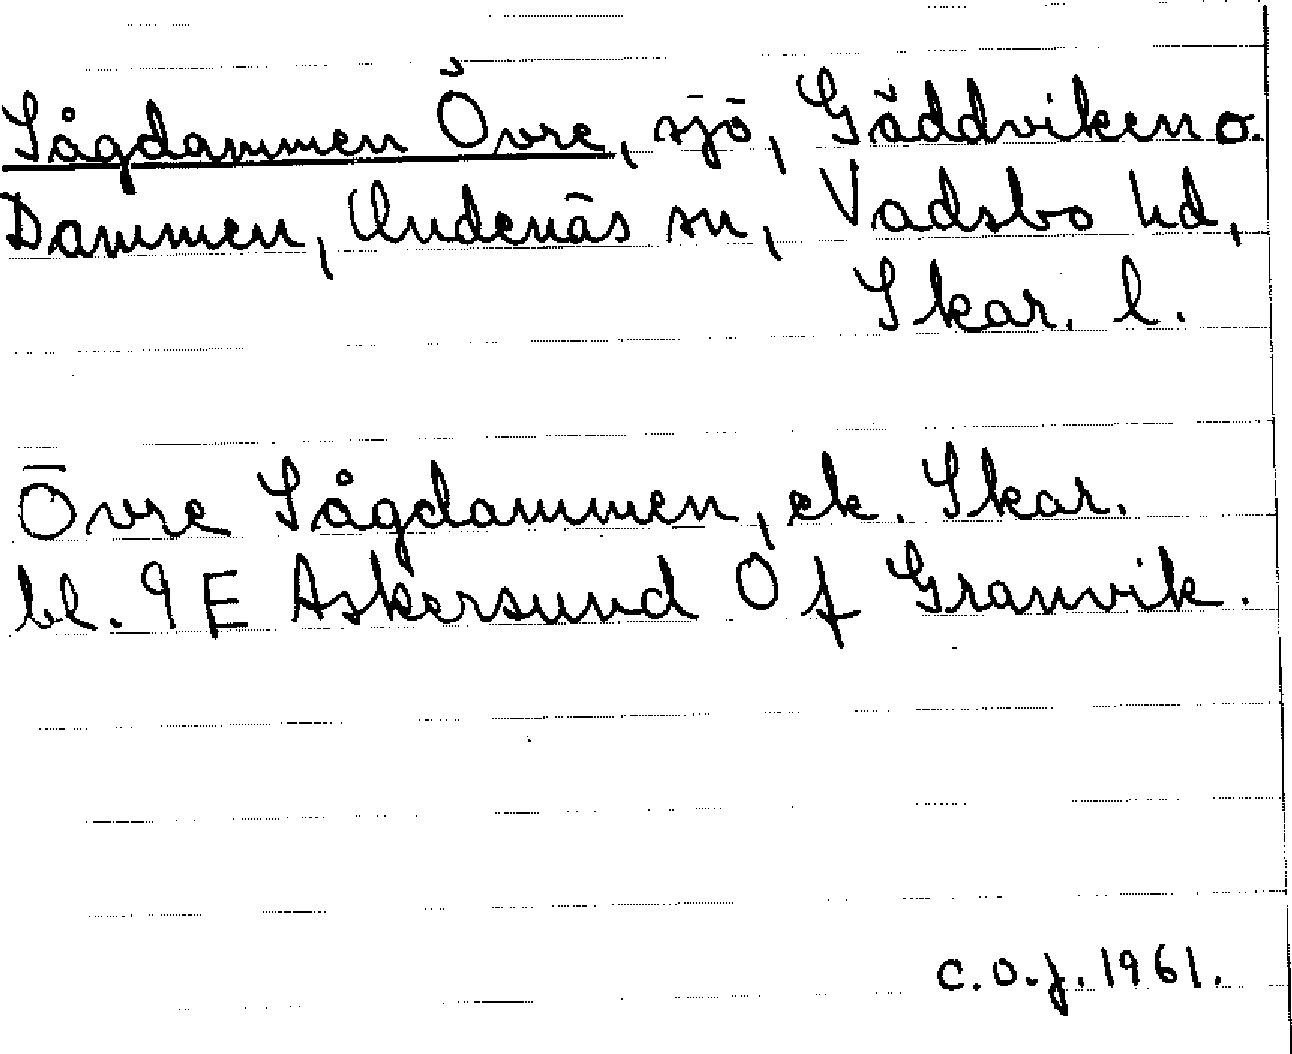 Sågdammen Övre, sjö, Gäddviken o.
Dammen, Undenäs sn, Vadsbo hd,
Skar. l.
Övre Sågdammen, ek. Skar.
bl. 9 E Askersund 0 f Granvik.
C.O.J. 1961.